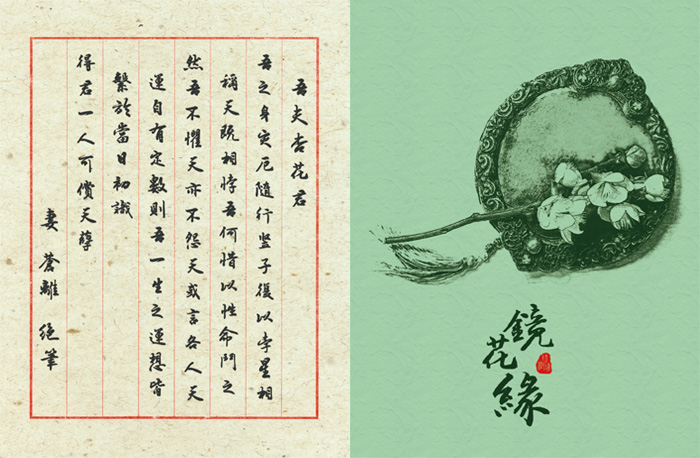 吾夫杏花君
吾之身灾厄隨行豎子復以孛星相
稱天既相悖吾何惜以性命鬥之
然吾不懼天亦不怨天或言各人天
運自有定數則吾一生之運想皆
繫於當日初識
得君一人可償天孽
妻 蒼離 絕筆
鏡花緣